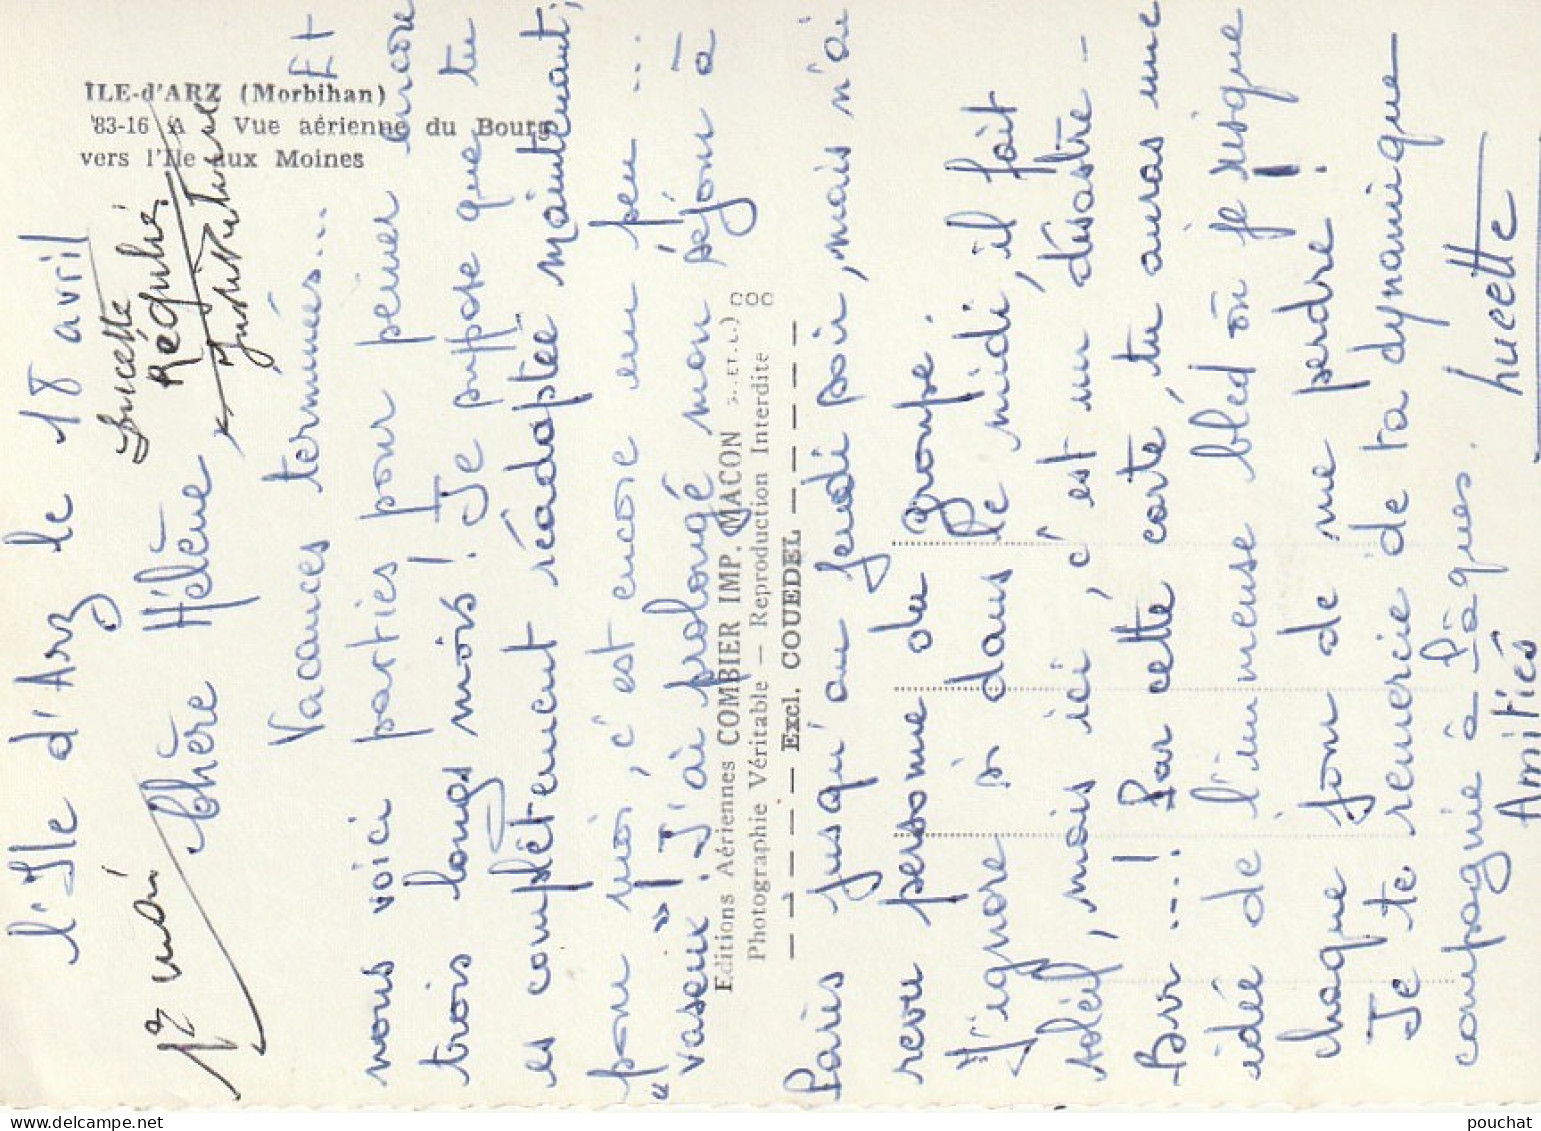 ÎLE-d'ARZ (Morbihan)
83-16 A - Vue aérienne du Bourg
vers l'Ile aux Moines
l'Ile d'Arz le 18 avril
12 mai
Lucette
Réguhé
Institutrice
Chère Hélène
Vacances terminées... Et
nous voici parties pour peiner encore
trois longs mois ! Je suppose que tu
es complètement réadaptée maintenant ;
pour moi, c'est encore un peu ...
"vaseux" ! J'ai prolongé mon séjour à
Paris jusqu'au jeudi soir, mais n'ai
revu personne du groupe.
J'ignore si dans le midi, il fait
soleil, mais ici, c'est un désastre -
Brr ...! Par cette carte tu auras une
idée de l'immense bled où je risque
chaque jour de me perdre !
Je te remercie de ta dynamique
compagnie à Pâques.
Amitiés Lucette
Editions Aériennes COMBIER IMP. MACON (S.ET.L.) COC
Photographie Véritable — Reproduction Interdite
Excl. COUEDEL
pouchat